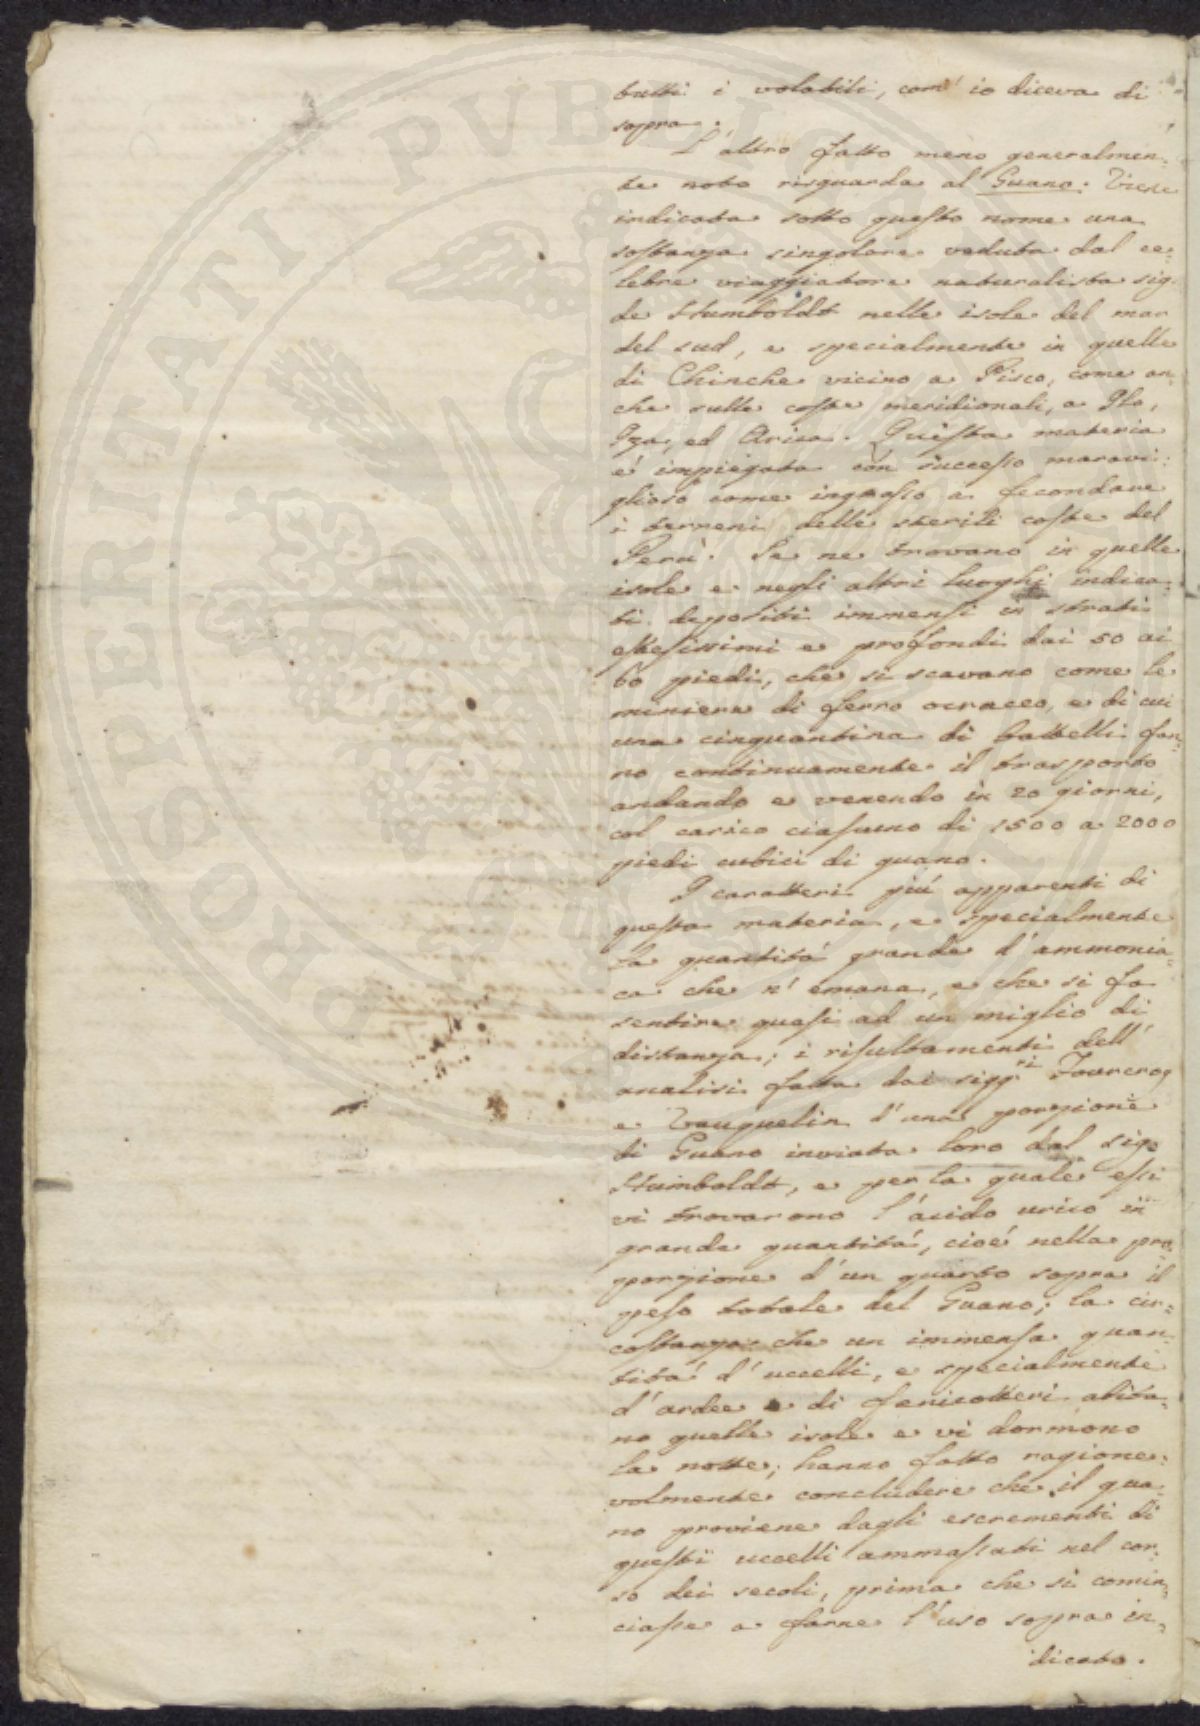 tutti i volatili, com' io diceva di
sopra.
L'altro fatto meno generalmen:
te noto risguarda al Guano. Viene
indicata sotto questo nome una
sostanza singolare veduta dal ce:
lebre viaggiatore naturalista sig.
de Humboldt nelle isole del mar
del sud, e specialmente in quelle
di Chinche vicino a Pisco, come an:
che sulle coste meridionali, a Ilo,
Iza, ed Arica. Questa materia
é impiegata con successo maravi:
glioso come ingrasso a fecondare
i terreni delle sterili coste del
Perù. Se ne trovano in quelle
isole e negli altri luoghi indica:
ti depositi immensi in strati
estesissimi e profondi dai 50 ai
60 piedi, che si scavano come le
miniere di ferro ocraceo, e di cui
una cinquantina di battelli fan:
no continuamente il trasporto
andando e venendo in 20 giorni,
col carico ciascuno di 1500 a 2000
piedi cubici di guano.
I caratteri più apparenti di
questa materia, e specialmente
la quantitá grande d'ammonia:
ca che n' emana, e che si fa
sentire quasi ad un miglio di
distanza; i risultamenti dell'
analisi fatta dai sigg.ri Fourcroy
e Vauquelin d'una porzione
di Guano inviata loro dal sig.
Humboldt, e per la quale essi
vi trovarono l'acido urico in
grande quantitá, cioé nella pro:
porzione d'un quarto sopra il
peso totale del Guano; la cir:
costanza che un immensa quan:
titá d'uccelli, e specialmente
d'ardee e di fenicotteri abita:
no quelle isole e vi dormono
la notte; hanno fatto ragione:
volmente concludere che il gua:
no proviene dagli escrementi di
questi uccelli ammassati nel cor:
so dei secoli, prima che si comin:
ciasse a farne l'uso sopra in:
dicato.
PROSPERITATI PVBLICAE